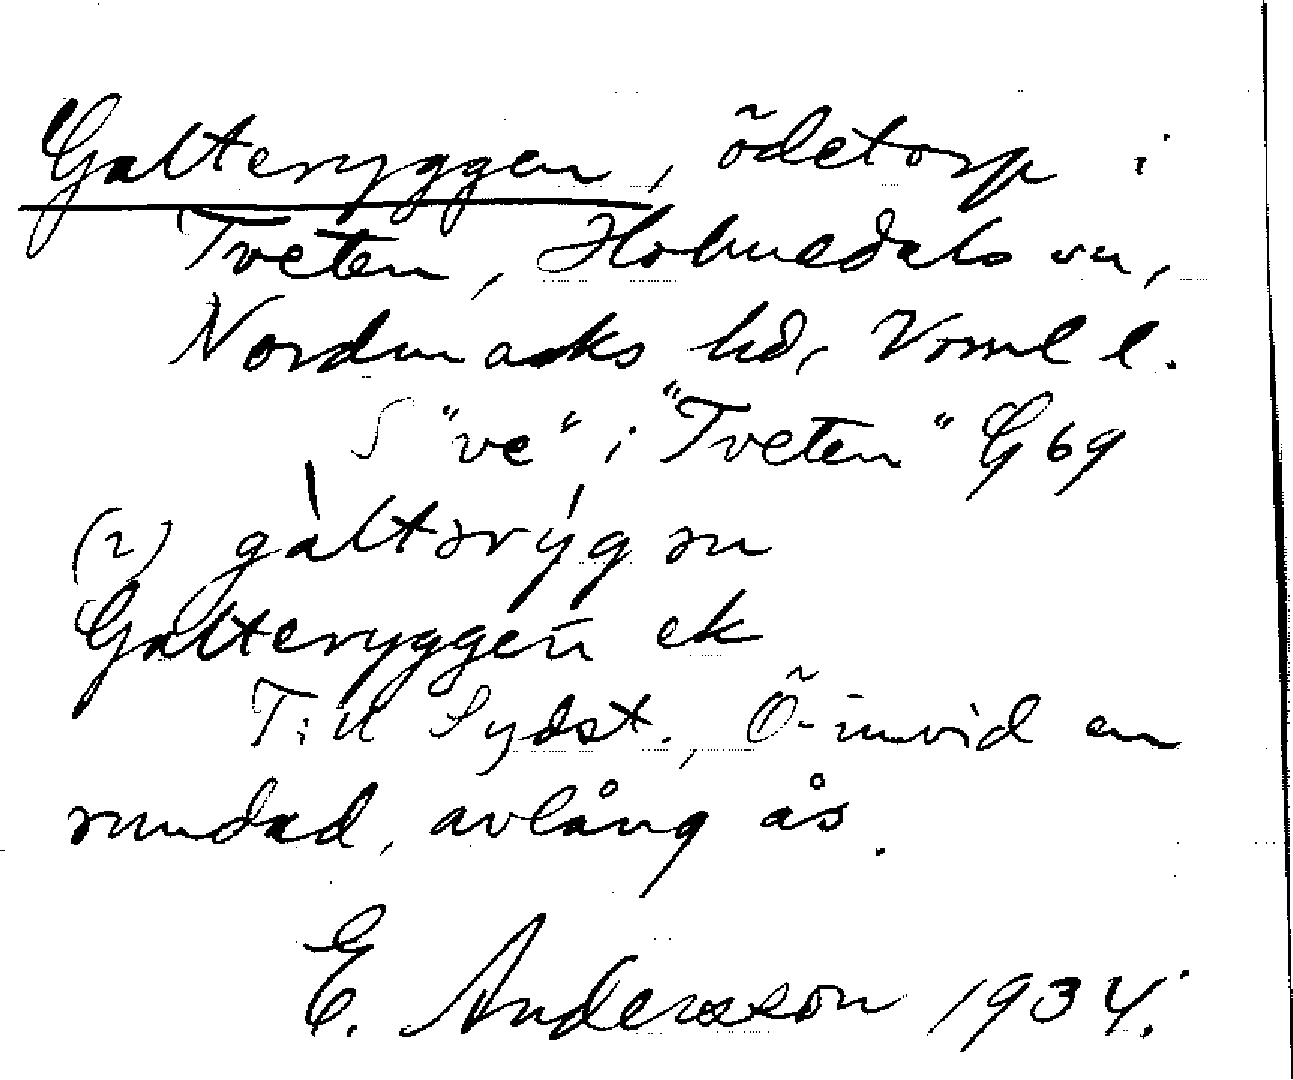 Galteryggen, ödetorp i
Tveten, Holmedals sn,
Nordmarks hd, Vrml l.
S "ve" i "Tveten" G69
(2) gàltərýgən
Galteryggen ek
Till Sydst., Ö invid en
rundad, avlång ås.
E. Andersson 1934.